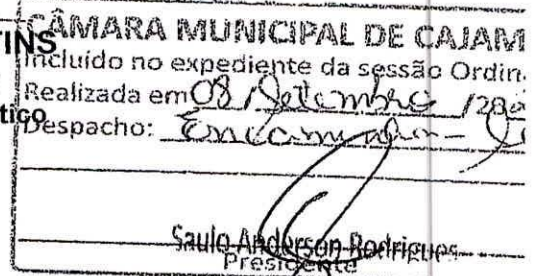 TINS
CÂMARA MUNICIPAL DE CAJAM
Incluído no expediente da sessão Ordin
Realizada em 08 / Setembro /
tico
Despacho: Encaminha-
Saulo Anderson Rodrigues
Presidente